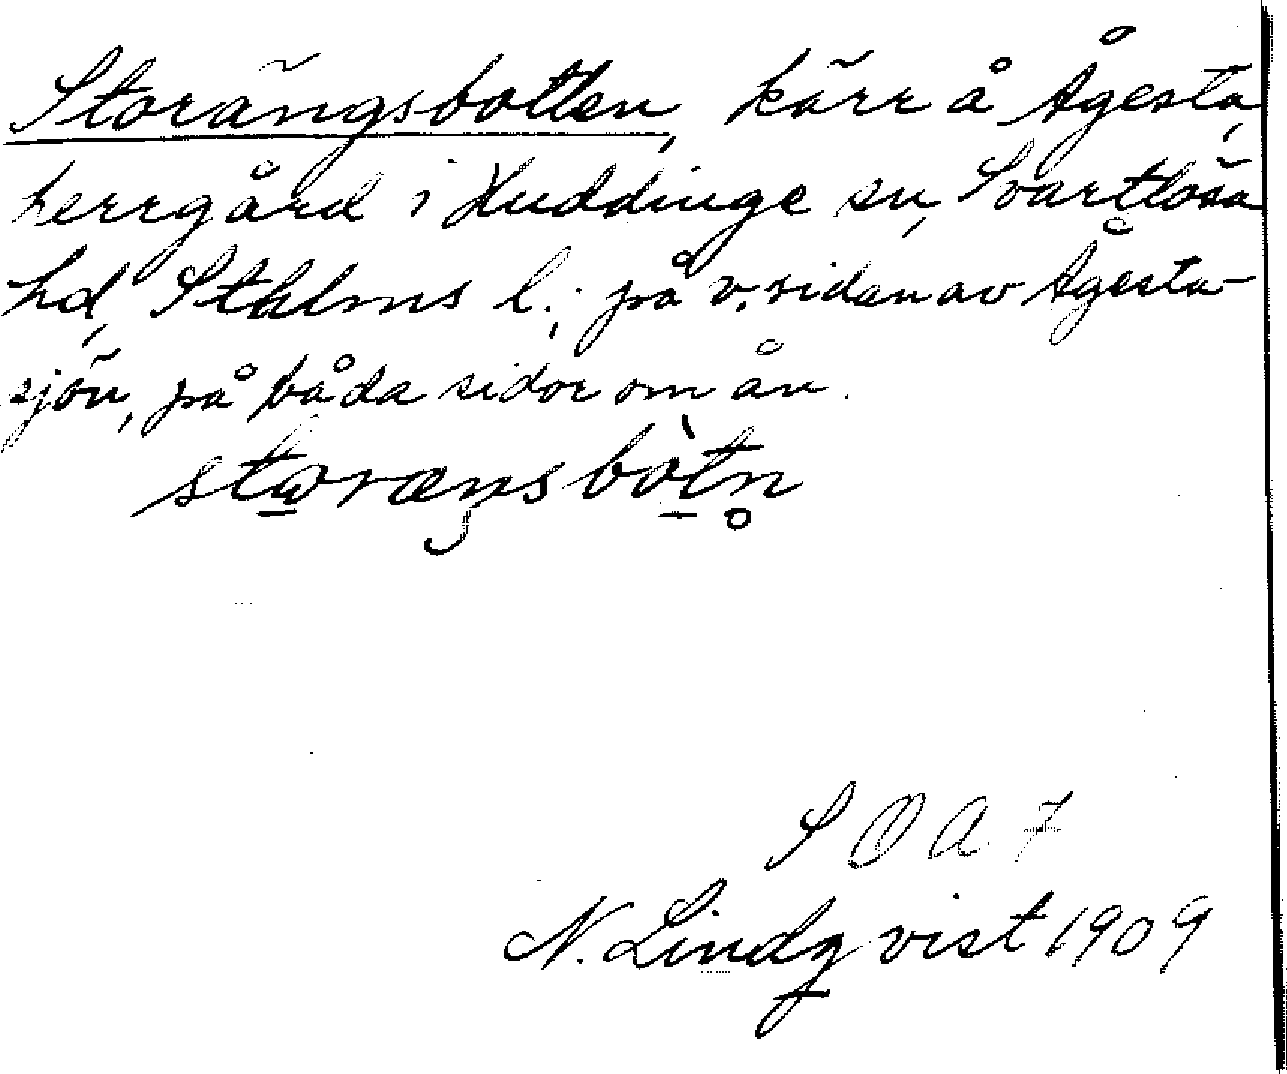 Storängsbotten, kärr å Ågesta,
herrgård i Huddinge sn, Svartlösa
hd, Sthlms l.; på v. sidan av Ågesta-
sjön, på båda sidor om ån.
N. Lindqvist 1909